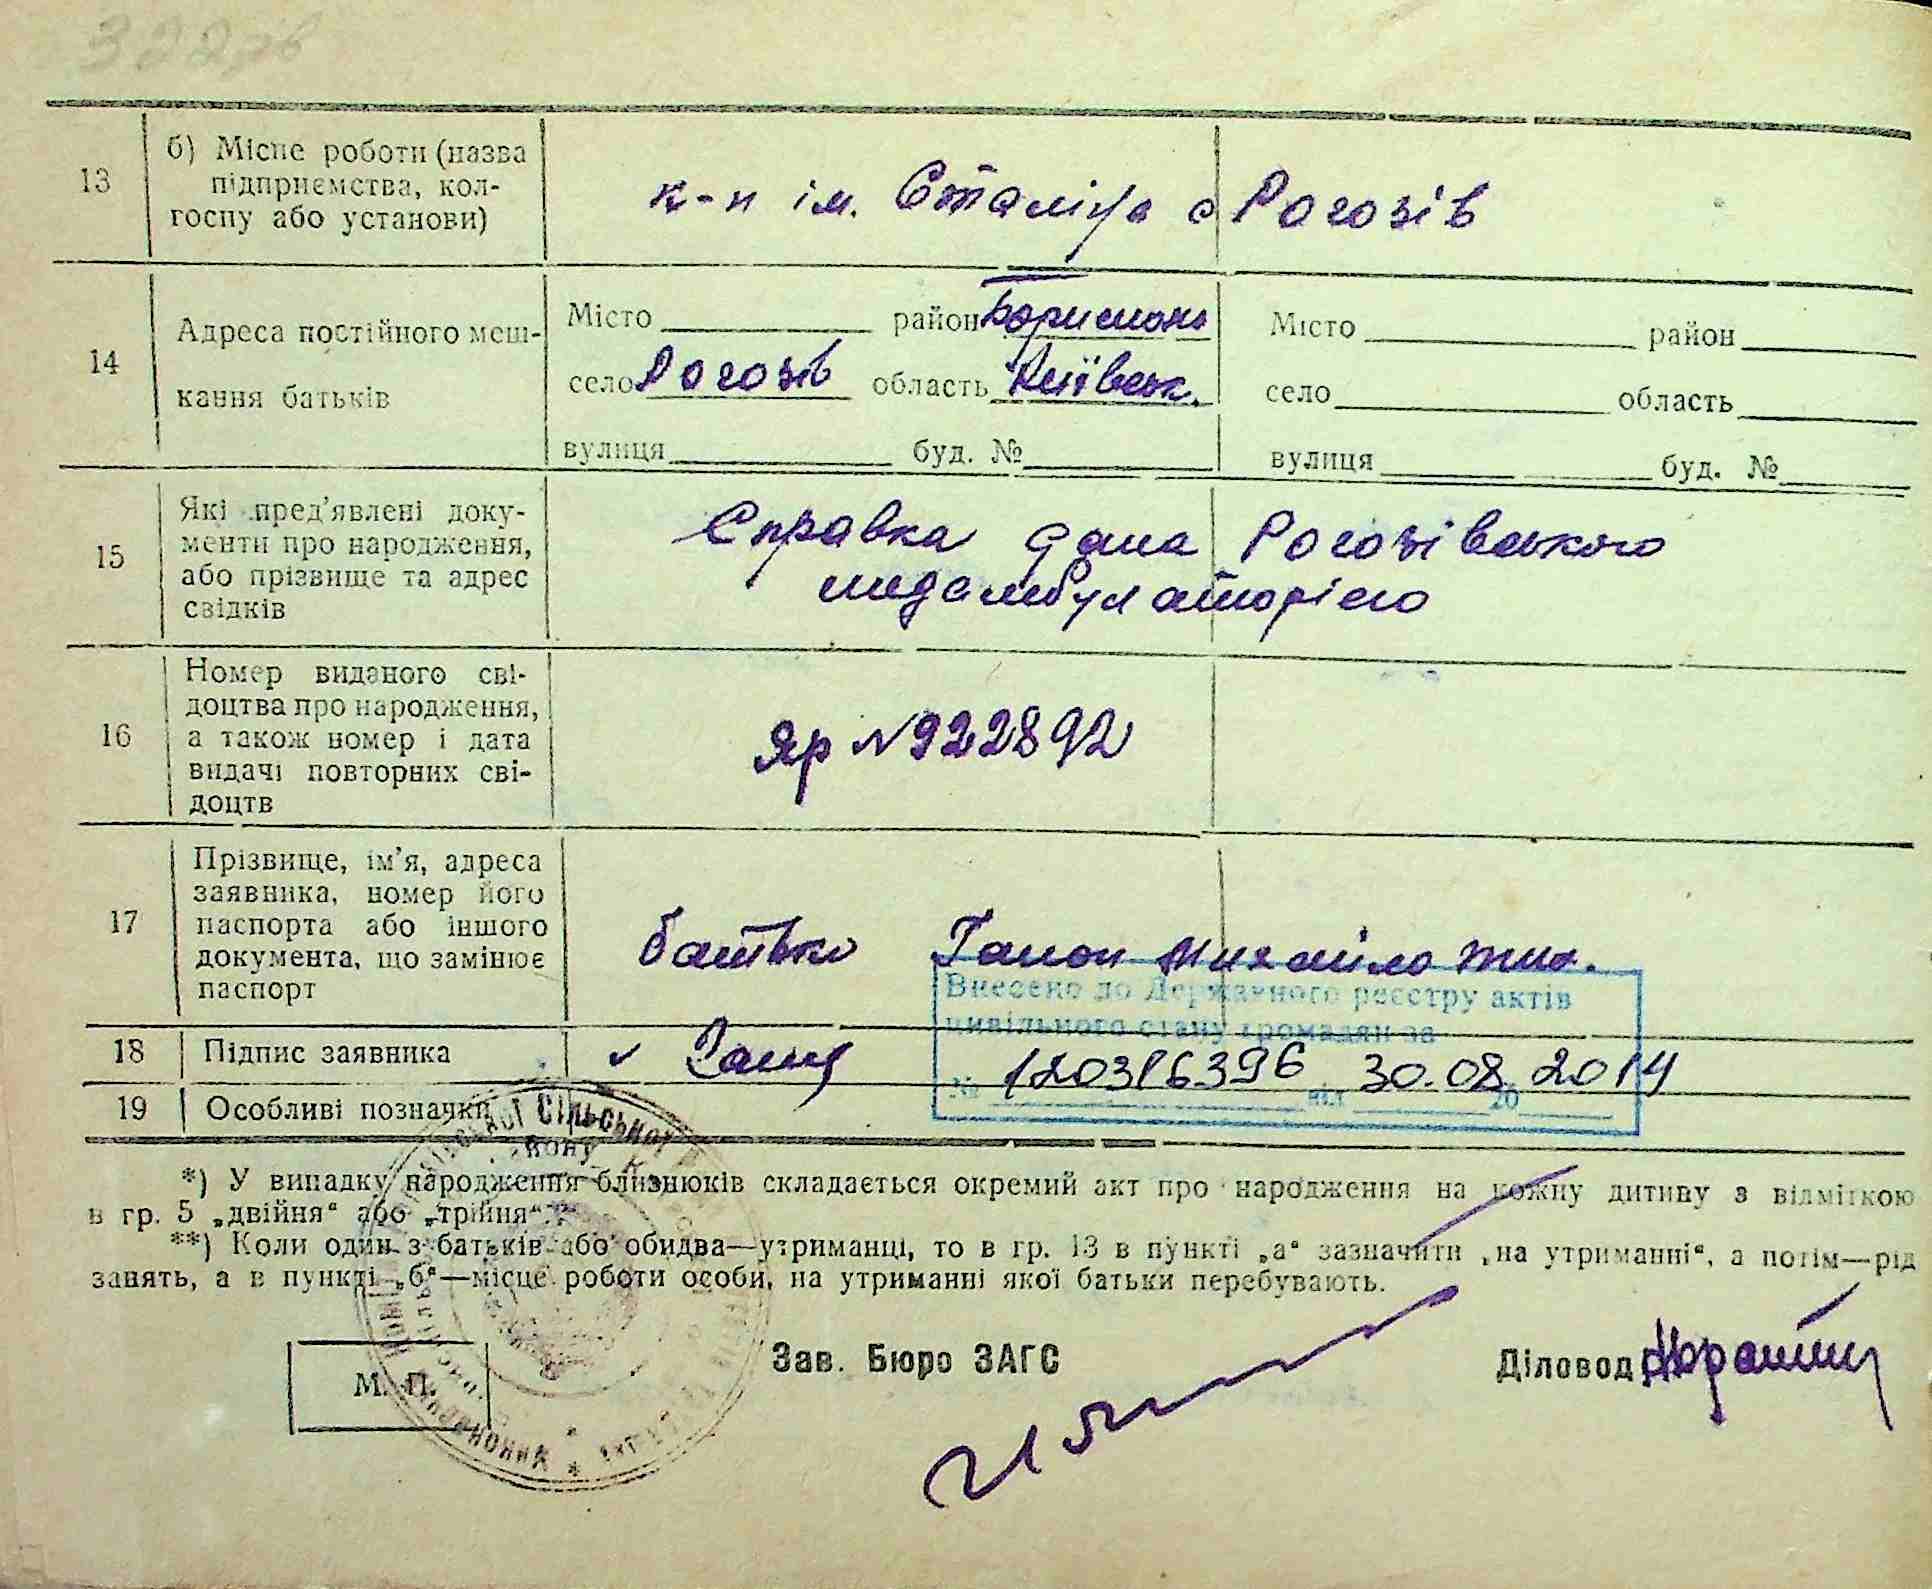 322зв
13
б) Місце роботи (назва
підприємства, кол-
госпу або установи)
к-п ім. Сталіна с Рогозів
14
Адреса постійного меш-
кання батьків
Місто район Бориспол
село Рогозів область Київськ.
вулиця буд. №
Місто район
село область
вулиця буд. №
15
Які пред’явлені доку-
менти про народження,
або прізвище та адрес
свідків
Справка дана Рогозівського
медамбулаторією
16
Номер виданого сві-
доцтва про народження,
а також номер і дата
видачі повторних сві-
доцтв
Яр №922892
17
Прізвище, ім’я, адреса
заявника, номер його
паспорта або іншого
документа, що замінює
паспорт
батько Гапон Михайло Тих.
Внесено до Державного реєстру актів
цивільного стану громадян за
№ 120316396 від 30.08.2014
18
Підпис заявника
19
Особливі позначки
*) У випадку народження близнюків складається окремий акт про народження на кожну дитину з відміткою
в гр. 5 „двійня“ або „трійня“.
**) Коли один з батьків або обидва—утриманці, то в гр. 13 в пункті „а“ зазначити „на утриманні“, а потім—рід
занять, а в пункті „б“—місце роботи особи, на утриманні якої батьки перебувають.
М. П.
Зав. Бюро ЗАГС
Діловод